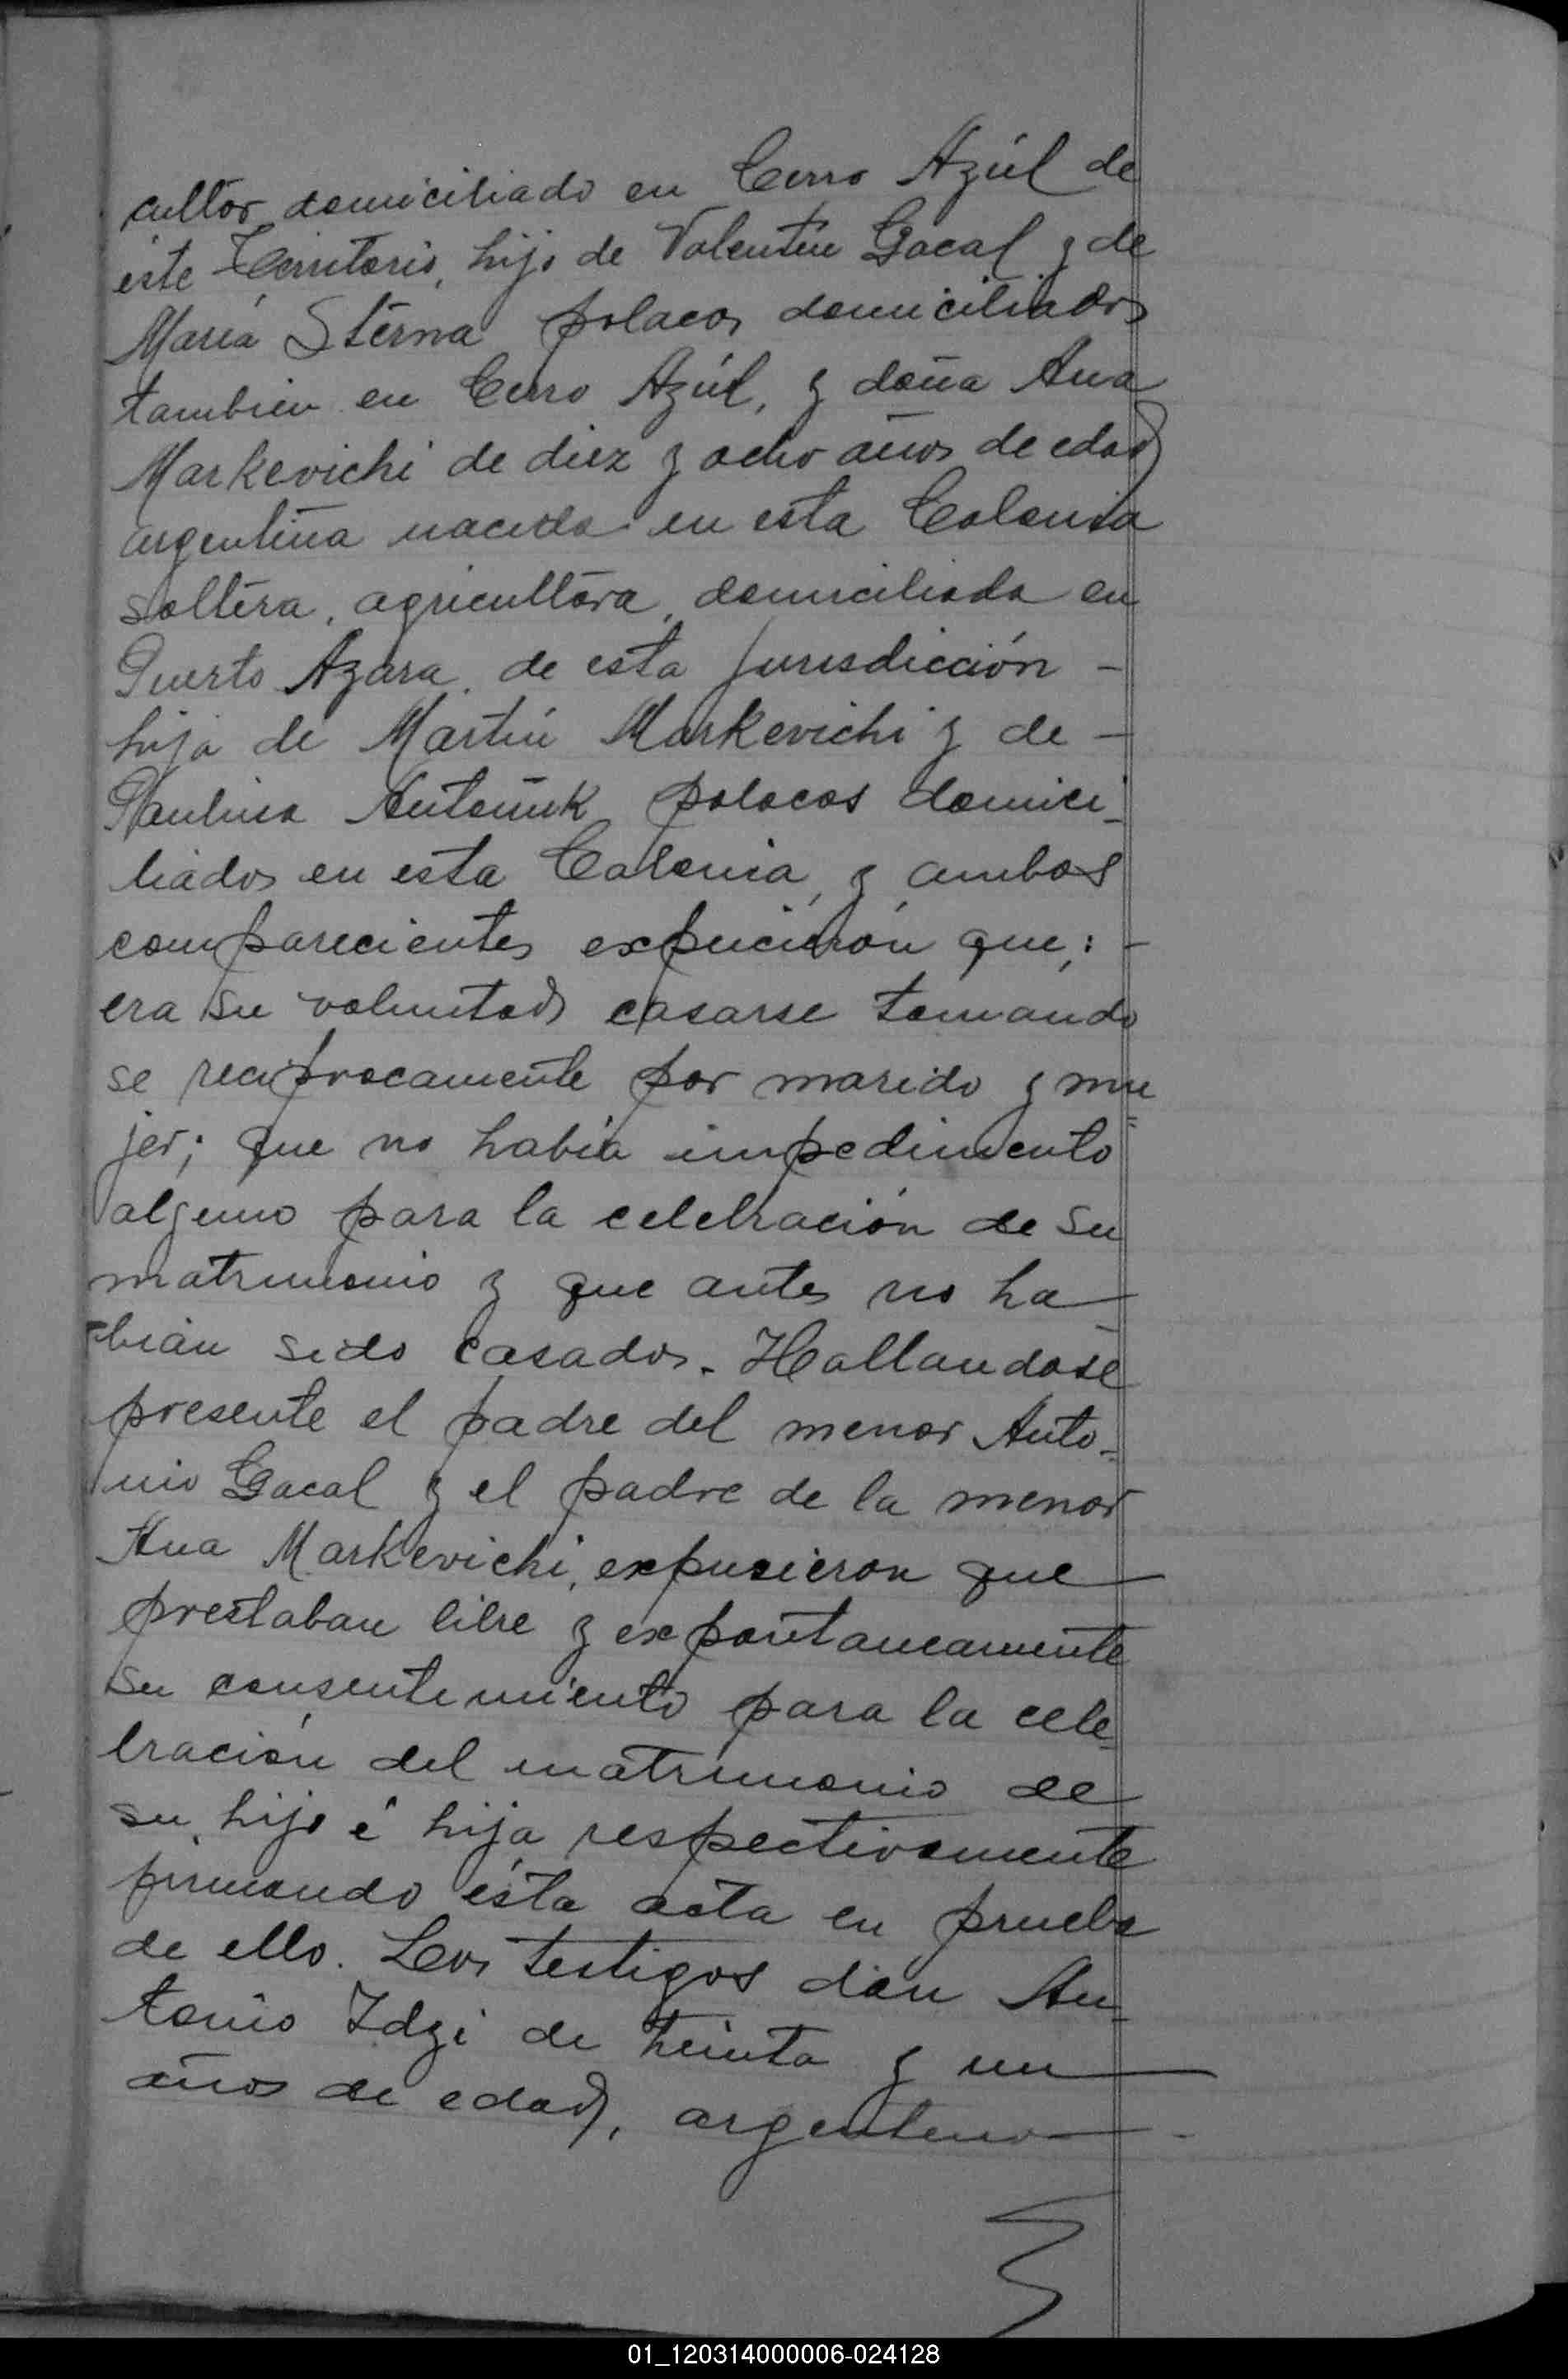 cultor domiciliado en Cerro Azúl de
éste Territorio, hijo de Valentín Gacal y de
María Sterna polacos domiciliados
tambien en Cerro Azúl, y doña Ana
Markevichi de diez y ocho años de edad
argentina nacida en esta Colonia
soltera, agricultora, domiciliada en
Puerto Azara, de esta jurisdicción -
hija de Martín Markevichi y de -
Paulina Antoniuk polacos domici-
liados en esta Colonia, y ambos
comparecientes expucierón que,: -
era su voluntad casarse tomando
se reciprocamente por marido y mu=
jer; que no había impedimento
alguno para la celebración de su
matrimonio y que antes no ha-
bían sido casados. Hallandose
presente el padre del menor Anto=
nio Gacal y el padre de la menor
Ana Markevichi, expusieron que
prestaban libre y expontaneamente
su consentimiento para la cele-
bración del matrimonio de
su hijo é hija respectivamente
firmando ésta acta en prueba
de ello. Los testigos don An-
tonio Idzi de treinta y un
años de edad, argentino -
01_120314000006-024128